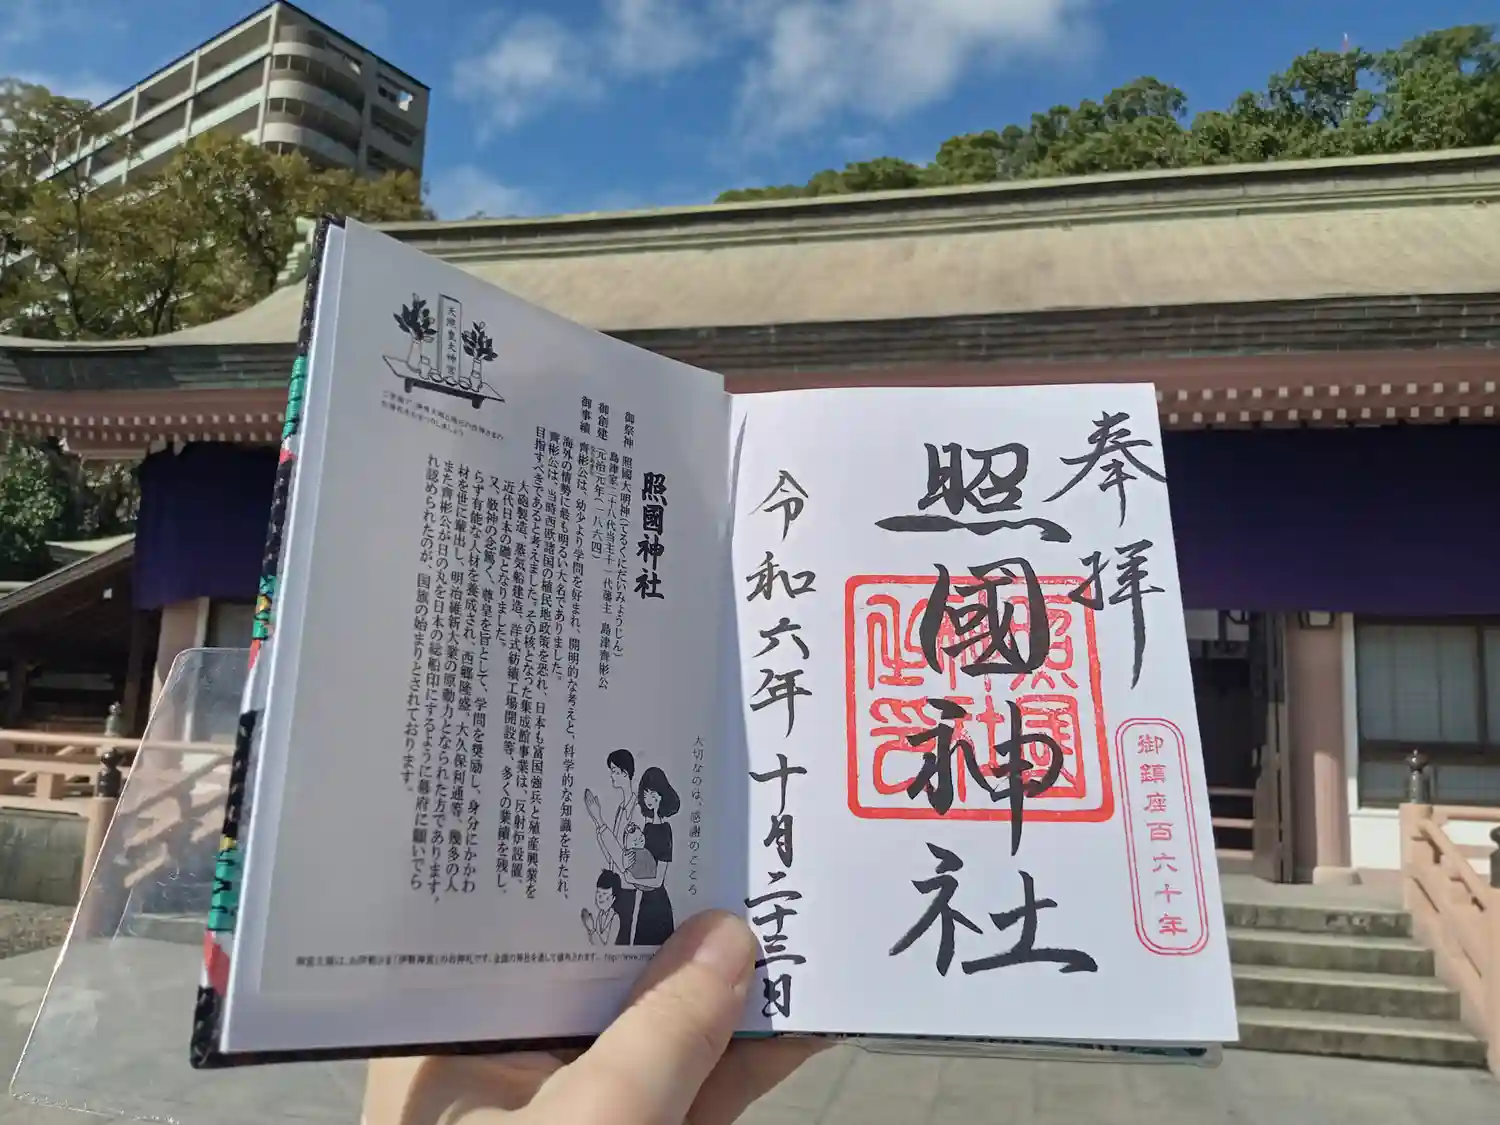 奉拝
照國神社
照國神社之印
御鎮座百六十年
令和六年十月二十三日
照國神社
御祭神 照國大明神(てるくにだいみょうじん)
島津家二十八代当主十一代藩主 島津齊彬公
御創建 元治元年(一八六四)
御事績 齊彬公は、幼少より学問を好まれ、開明的な考えと、科学的な知識を持たれ、
海外の情勢に最も明るい大名でありました。
齊彬公は、当時西欧諸国の植民地政策を恐れ、日本も富国強兵と殖産興業を
目指すべきであると考えました。その核となった集成館事業は、反射炉設置、
大砲製造、蒸気船建造、洋式紡績工場開設等、多くの業績を残し、
近代日本の礎となりました。
又、敬神の念篤く、尊皇を旨として、学問を奨励し、身分にかかわ
らず有能な人材を養成され、西郷隆盛、大久保利通等、幾多の人
材を世に輩出し、明治維新大業の原動力となられた方であります。
また齊彬公が日の丸を日本の総船印にするように幕府に願いでら
れ認められたのが、国旗の始まりとされております。
天照皇大神宮
大切なのは、感謝のこころ
神宮大麻は、お伊勢さま「伊勢神宮」のお神札です。全国の神社を通して頒布されます。